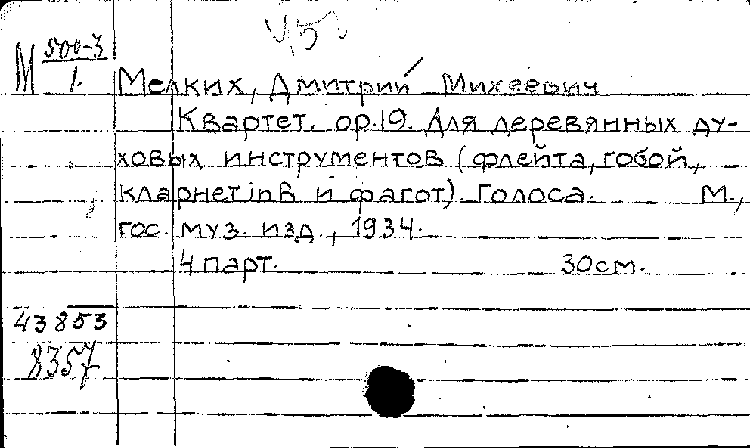 М 500-3
1.
Мелких, Дмитрий Михеевич
Квартет. ор.19. Для деревянных ду-
ховых инструментов (флейта, гобой,
кларнет in B и фагот). Голоса. М.,
гос. муз. изд., 1934.
4 парт. 30 см.
43853
8357